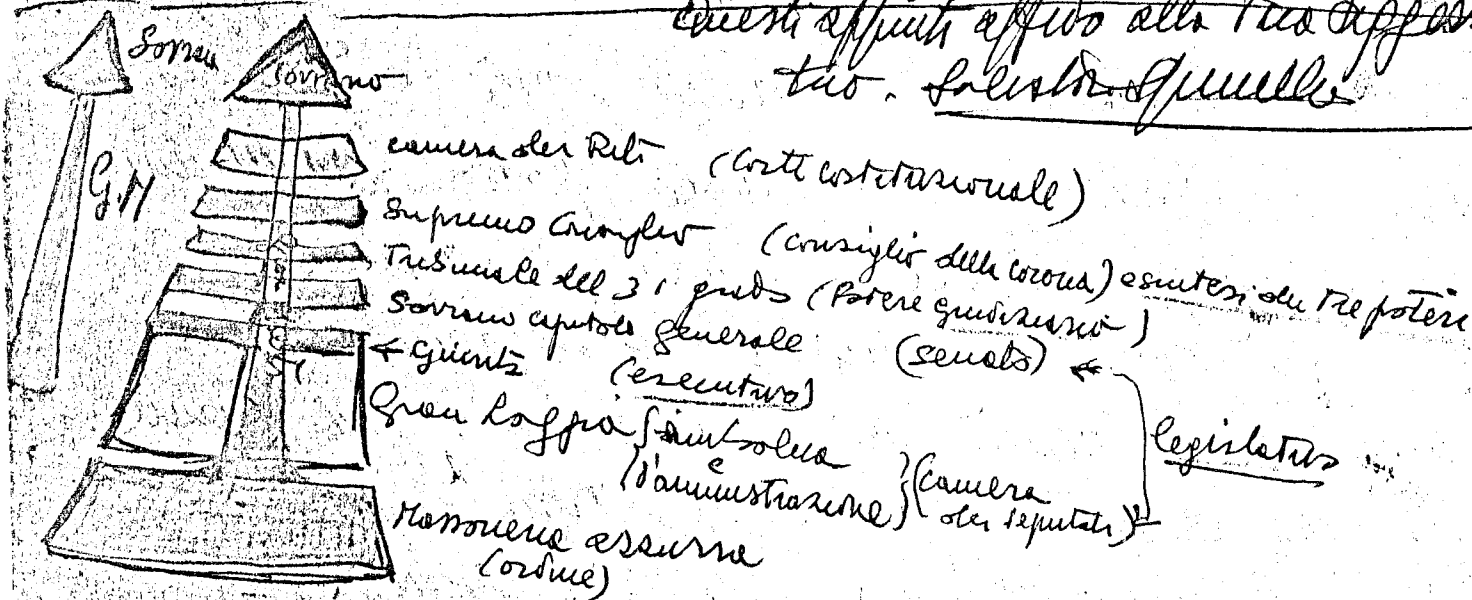 questi appunti affido alla tua
tuo.
Sovrano
G.M
Sovrano
camera dei Riti (Corte costituzionale)
Supremo Consiglio (Consiglio della corona) e sintesi dei tre poteri
Tribunale del 31 grado (Potere giudiziario)
Sovrano capitolo generale (senato)
← Giunta (esecutivo)
Gran Loggia simbolica
d'amministrazione (camera dei deputati)
legislativo
Massoneria azzurra
(ordine)